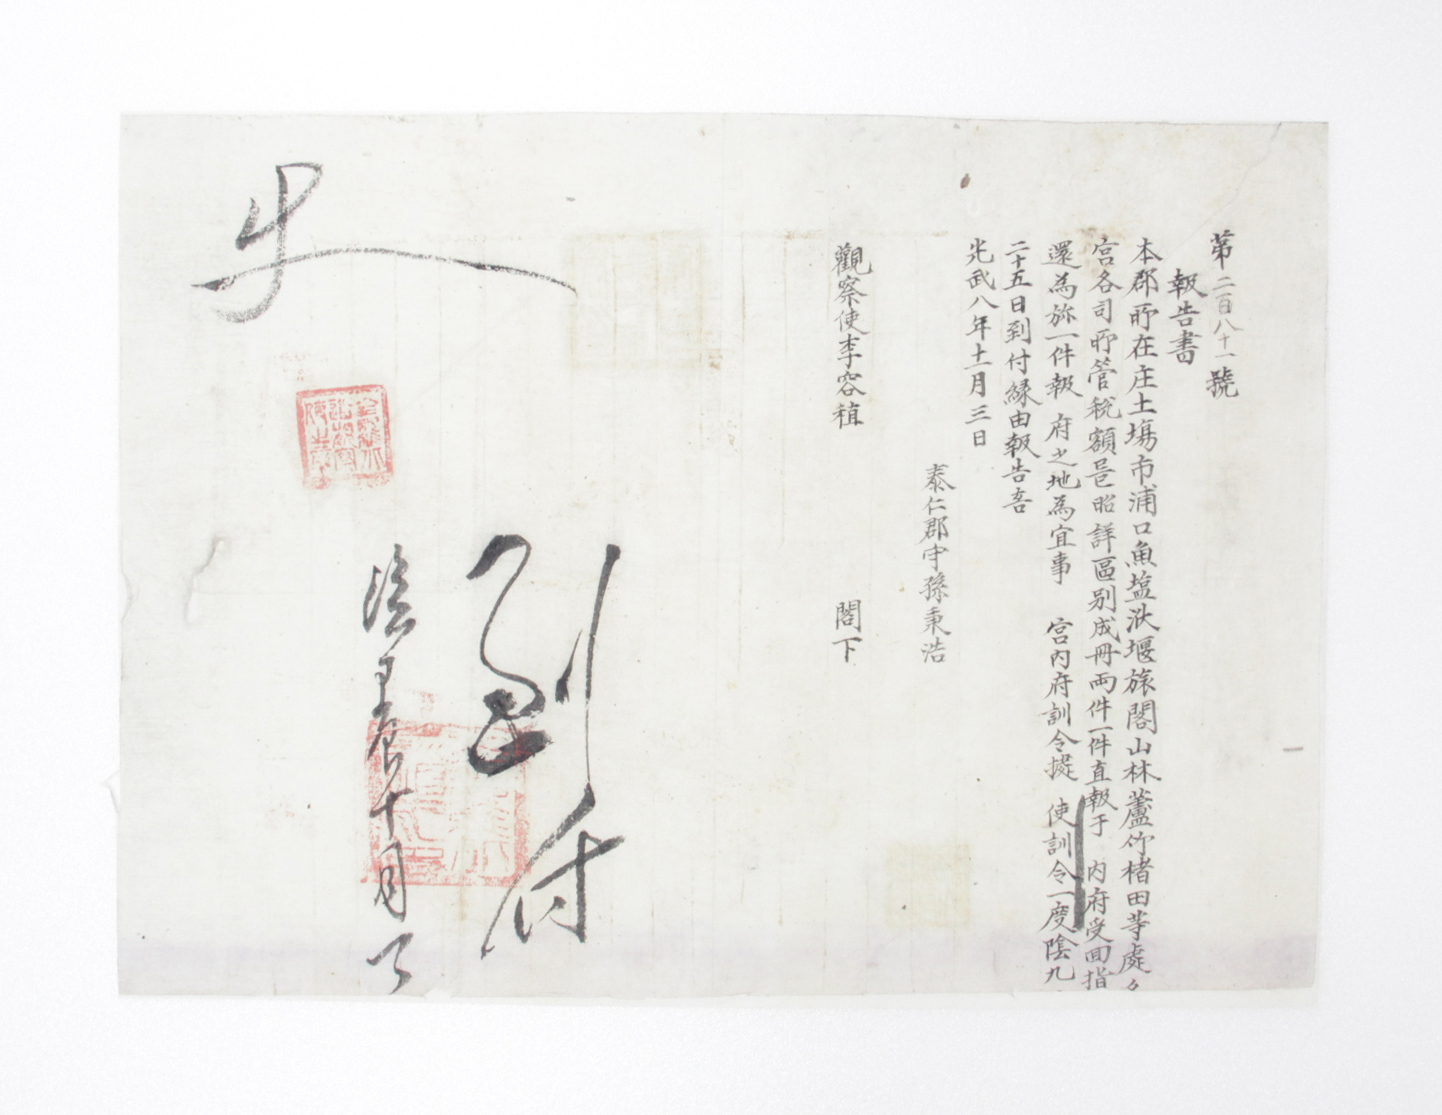 第二百八十一號
報告書
本郡所在庄土場市浦口魚塩洑堰旅閣山林蘆竹楮田等處々
宮各司所管稅額昭詳區別成冊兩件一件直報于 內府受回指
還為旀一件報 府之地為宜事 宮內府訓令據 使訓令一度陰九
二十五日到付緣由報告喜
光武八年十一月三日
泰仁郡守孫秉浩
觀察使李容稙 閣下
到付
陰甲辰十月